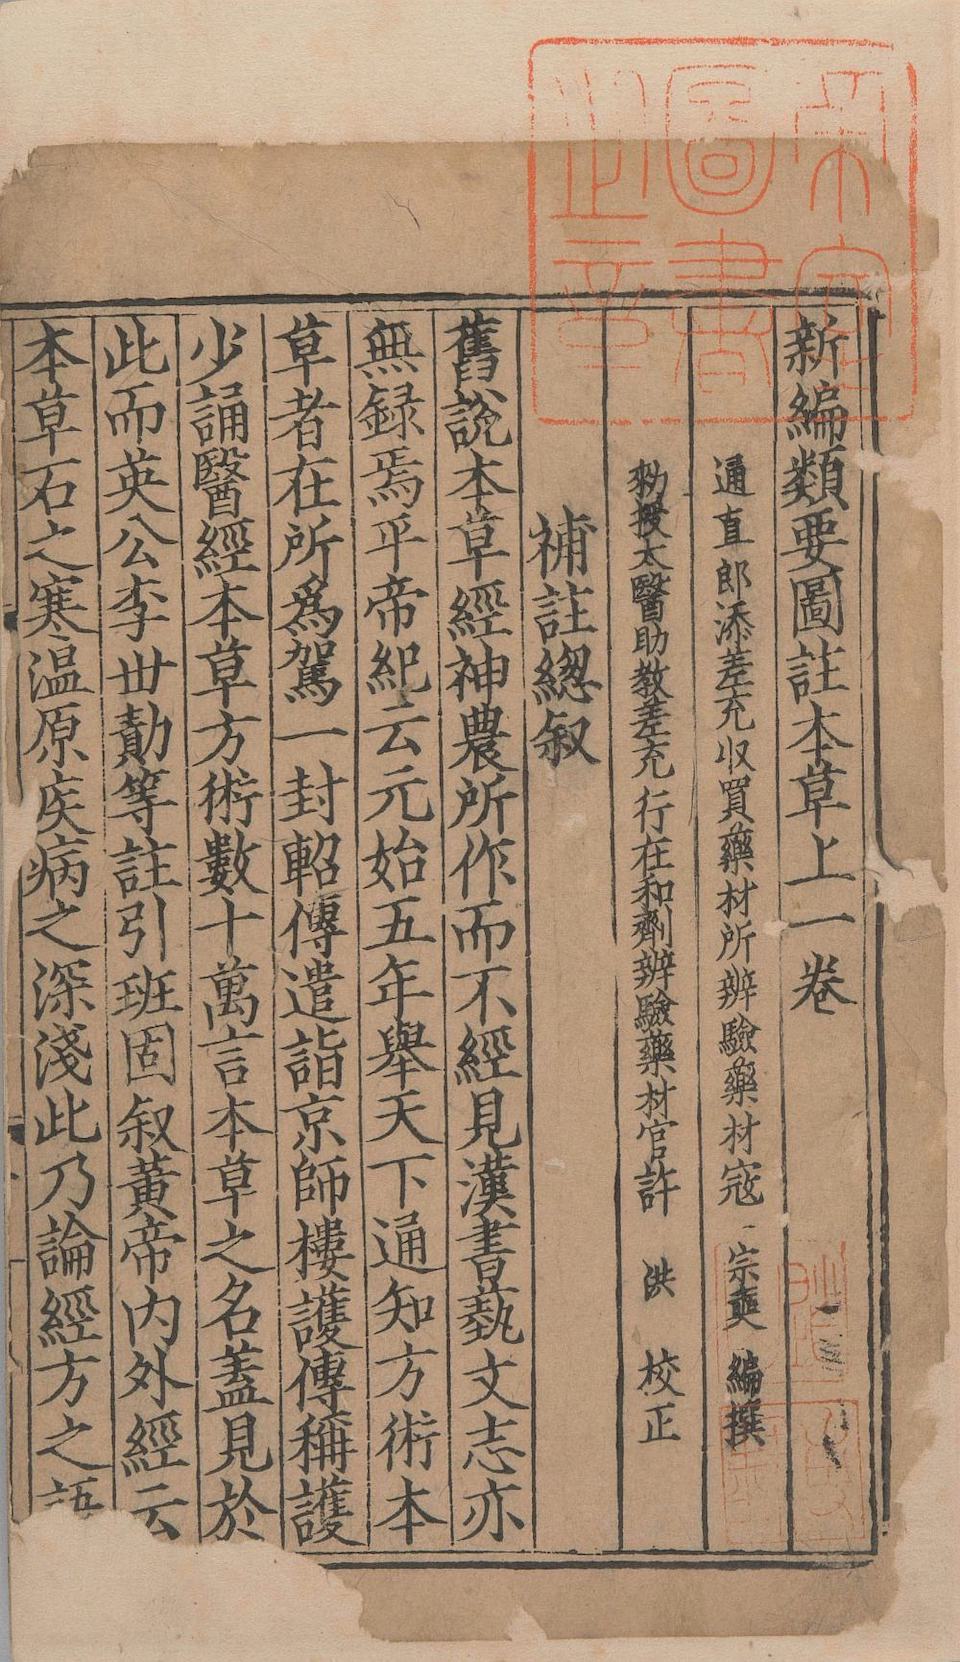 新編類要圖註本草上一卷
通直郎添差充收買藥材所辨驗藥材寇宗奭編撰
勑授太醫助教差充行在和劑辨驗藥材官許洪校正
補註緫叙
舊說本草經神農所作而不經見漢書藝文志亦
無録焉平帝紀云元始五年舉天下通知方術本
草者在所爲駕一封軺傳遣詣京師樓護傳稱護
少誦醫經本草方術數十萬言本草之名蓋見於
此而英公李世勣等註引班固叙黃帝内外經云
本草石之寒温原疾病之深淺此乃論經方之語
圖書之